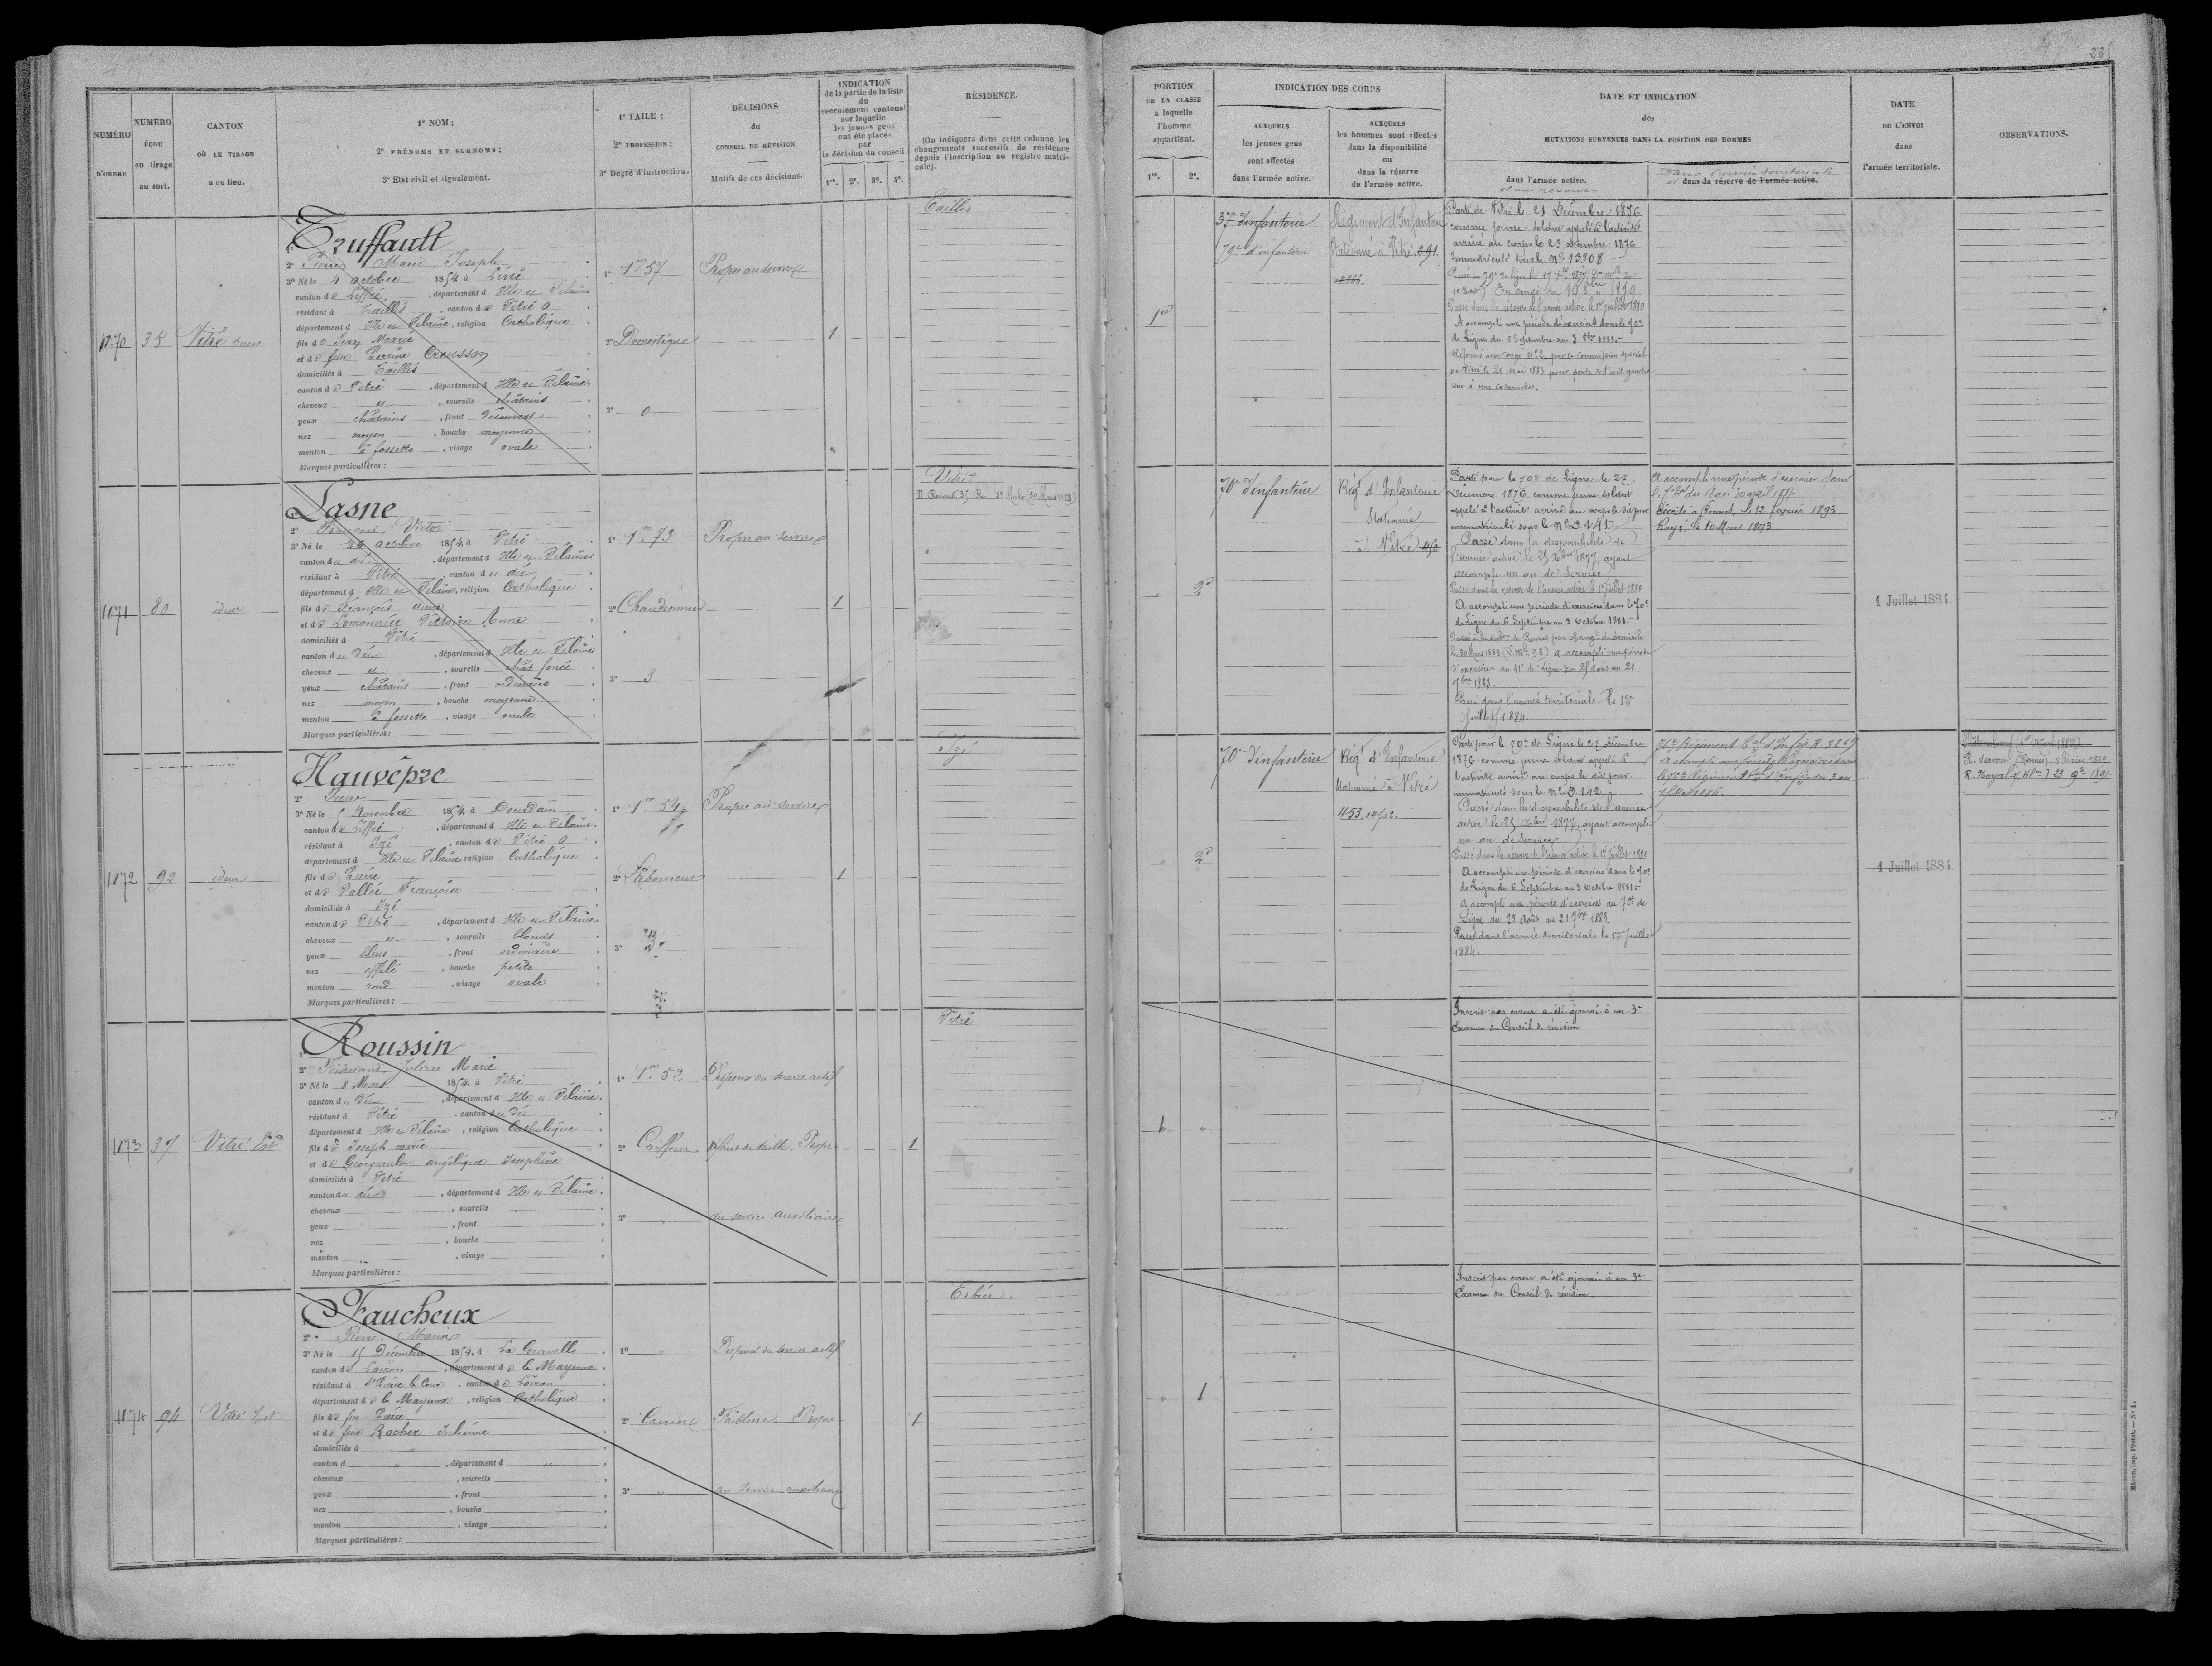 470
235
NUMÉRO
D'ORDRE
NUMÉRO
ÉCHU
au tirage
au sort.
CANTON
OÙ LE TIRAGE
a eu lieu.
1º NOM ;
2º PRÉNOMS ET SURNOMS ;
3º Etat civil et signalement.
1º TAILE ;
2º PROFESSION ;
3º Degré d'instruction.
DÉCISIONS
du
CONSEIL DE RÉVISION
Motifs de ces décisions.
INDICATION
de la partie de la liste
du
recrutement cantonal
sur laquelle
les jeunes gens
ont été placés
par
la décision du conseil
1re. 2e. 3e. 4e.
RÉSIDENCE.
(On indiquera dans cette colonne les
changements successifs de résidence
depuis l'inscription au registre matri-
cule).
PORTION
DE LA CLASSE
à laquelle
l'homme
appartient.
1re. 2e.
INDICATION DES CORPS
AUXQUELS
les jeunes gens
sont affectés
dans l'armée active.
AUXQUELS
les hommes sont affectés
dans la disponibilité
ou
dans la réserve
de l'armée active.
DATE ET INDICATION
des
MUTATIONS SURVENUES DANS LA POSITION DES HOMMES
dans l'armée active.
et sa réserve
Dans l'armée territoriale
et dans la réserve de l'armée active.
DATE
DE L'ENVOI
dans
l'armée territoriale.
OBSERVATIONS.
1870
35
Vitré
1º Truffault
2º Pierre Marie Joseph
3º Né le 4 Octobre 1854 à Livré
canton de Liffré, département d'Ille et Vilaine
résidant à Taillis, canton de Vitré
département d'Ille et Vilaine, religion Catholique
fils de Jean Marie
et de feue Perrine Creusson
domiciliés à Taillis
canton de Vitré, département d'Ille et Vilaine
cheveux et, sourcils châtains
yeux châtains, front découvert
nez moyen, bouche moyenne
menton à fossette, visage ovale
Marques particulières :
1º 1m 57
2º Domestique
3º 0
Propre au service
1
Taillis
1re
37 d'infanterie
79e d'infanterie
Régiment d'Infanterie
Stationné à Vitré 291
Parti de Vitré le 21 Décembre 1876
comme jeune soldat appelé à l'activité
arrivé au corps le 23 Décembre 1876
Immatriculé sous le Nº 13308
En congé
Passé dans la réserve de l'armée active le 1er juillet 1880
A accompli une période d'exercices dans le 70e
de Ligne du 6 Septembre au 3 8bre 1881.
Réformé avec congé nº 2 par la commission spéciale
de Vitré le 21 Mai 1883 pour perte de l'œil gauche
due à une cataracte.
1871
80
idem
1º Lasne
2º François Victor
3º Né le 26 Octobre 1854 à Vitré
canton du dit, département d'Ille et Vilaine
résidant à Vitré, canton du dit
département d'Ille et Vilaine, religion Catholique
fils de François Anne
et de Lemonnier Victoire Anne
domiciliés à Vitré
canton du dit, département d'Ille et Vilaine
cheveux et, sourcils chat foncé
yeux châtains, front ordinaire
nez moyen, bouche moyenne
menton à fossette, visage ovale
Marques particulières :
1º 1m 73
2º Chaudronnier
3º 3
Propre au service
1
Vitré
D. Rennes 35 Rue St Malo (30 Mars 1883)
2e
70e d'infanterie
Régt d'Infanterie
Stationné
à Vitré 450
Parti pour le 70e de Ligne le 27
Décembre 1876 comme jeune soldat
appelé à l'activité arrivé au corps le dit jour
immatriculé sous le Nº 9141.
Passé dans la disponibilité de
l'armée active le 25 Xbre 1877, ayant
accompli un an de service
Passé dans la réserve de l'armée active le 1er juillet 1880
A accompli une période d'exercices dans le 70e
de Ligne du 6 Septembre au 3 Octobre 1881.
Passé à la subon de Rennes par changt de domicile
le 30 Mars 1883 A accompli une période
d'exercices au 41e de Ligne du 25 août au 21
7bre 1883.
Passé dans l'armée territoriale le 1er
Juillet 1884.
A accompli une période d'exercice dans
Décédé à Rennes, le 12 février 1893
Rayé, le 10 Mars 1893
1 Juillet 1884
1872
92
idem
Hauvêpre
2º Pierre
3º Né le 5 Novembre 1854 à Dourdain
canton de Liffré, département d'Ille et Vilaine
résidant à Izé, canton de Vitré
département d'Ille et Vilaine, religion Catholique
fils de Pierre
et de Vallée Françoise
domiciliés à Izé
canton de Vitré, département d'Ille et Vilaine
cheveux et, sourcils blonds
yeux bleus, front ordinaire
nez effilé, bouche petite
menton rond, visage ovale
Marques particulières :
1º 1m 54
2º Laboureur
3º 3
Propre au service
1
Izé
2e
70e d'infanterie
Régt d'Infanterie
Stationné à Vitré
453.
Parti pour le 70e de Ligne le 27 Décembre
1876 comme jeune soldat appelé à
l'activité arrivé au corps le dit jour
immatriculé sous le Nº 9142
Passé dans la disponibilité de l'armée
active le 25 Xbre 1877, ayant accompli
un an de Service
Passé dans la réserve de l'armée active le 1er Juillet 1880
A accompli une période d'exercices dans le 70e
de Ligne du 6 Septembre au 3 Octobre 1881.
A accompli une période d'exercices au 70e de
Ligne du 25 Août au 21 7bre 1883.
Passé dans l'armée territoriale le 1er Juillet
1884.
76e Régiment Tal d'Infie R. 3269
A accompli une période d'exercices dans
le 76e Régiment Tal d'Infie du 3 au
1886.
1 Juillet 1884
R. Servon (Rennes)
R. Noyal 1891
1873
37
Vitré Est
1º Roussin
2º Ferdinand Julien Marie
3º Né le 8 Mars 1854 à Vitré
canton du dit, département d'Ille et Vilaine
résidant à Vitré, canton du dit
département d'Ille et Vilaine, religion Catholique
fils de Joseph
et de Georgeault Angélique Joséphine
domiciliés à Vitré
canton du dit, département d'Ille et Vilaine
cheveux, sourcils
yeux, front
nez, bouche
menton, visage
Marques particulières :
1º 1m 52
2º Coiffeur
3º "
Dispensé du service actif
défaut de taille. Propre
au service auxiliaire
1
Vitré
1 "
Inscrit par erreur a été ajourné à un 3e
Examen du Conseil de révision
1874
94
Vitré Est
1º Faucheux
2º Pierre Marie
3º Né le 15 Décembre 1854 à La Gravelle
canton de Loiron, département de la Mayenne
résidant à St Pierre la Cour, canton de Loiron
département de la Mayenne, religion Catholique
fils de feu Pierre
et de feue Rocher Julienne
domiciliés à "
canton d ", département d "
cheveux, sourcils
yeux, front
nez, bouche
menton, visage
Marques particulières :
1º "
2º Carrier
3º "
Dispensé du service actif
Faiblesse. Propre
au service auxiliaire
1
Erbrée.
" 1
Inscrit par erreur a été ajourné à un 3e
Examen du Conseil de révision.
Mâcon, imp. Protat. — Nº 1.